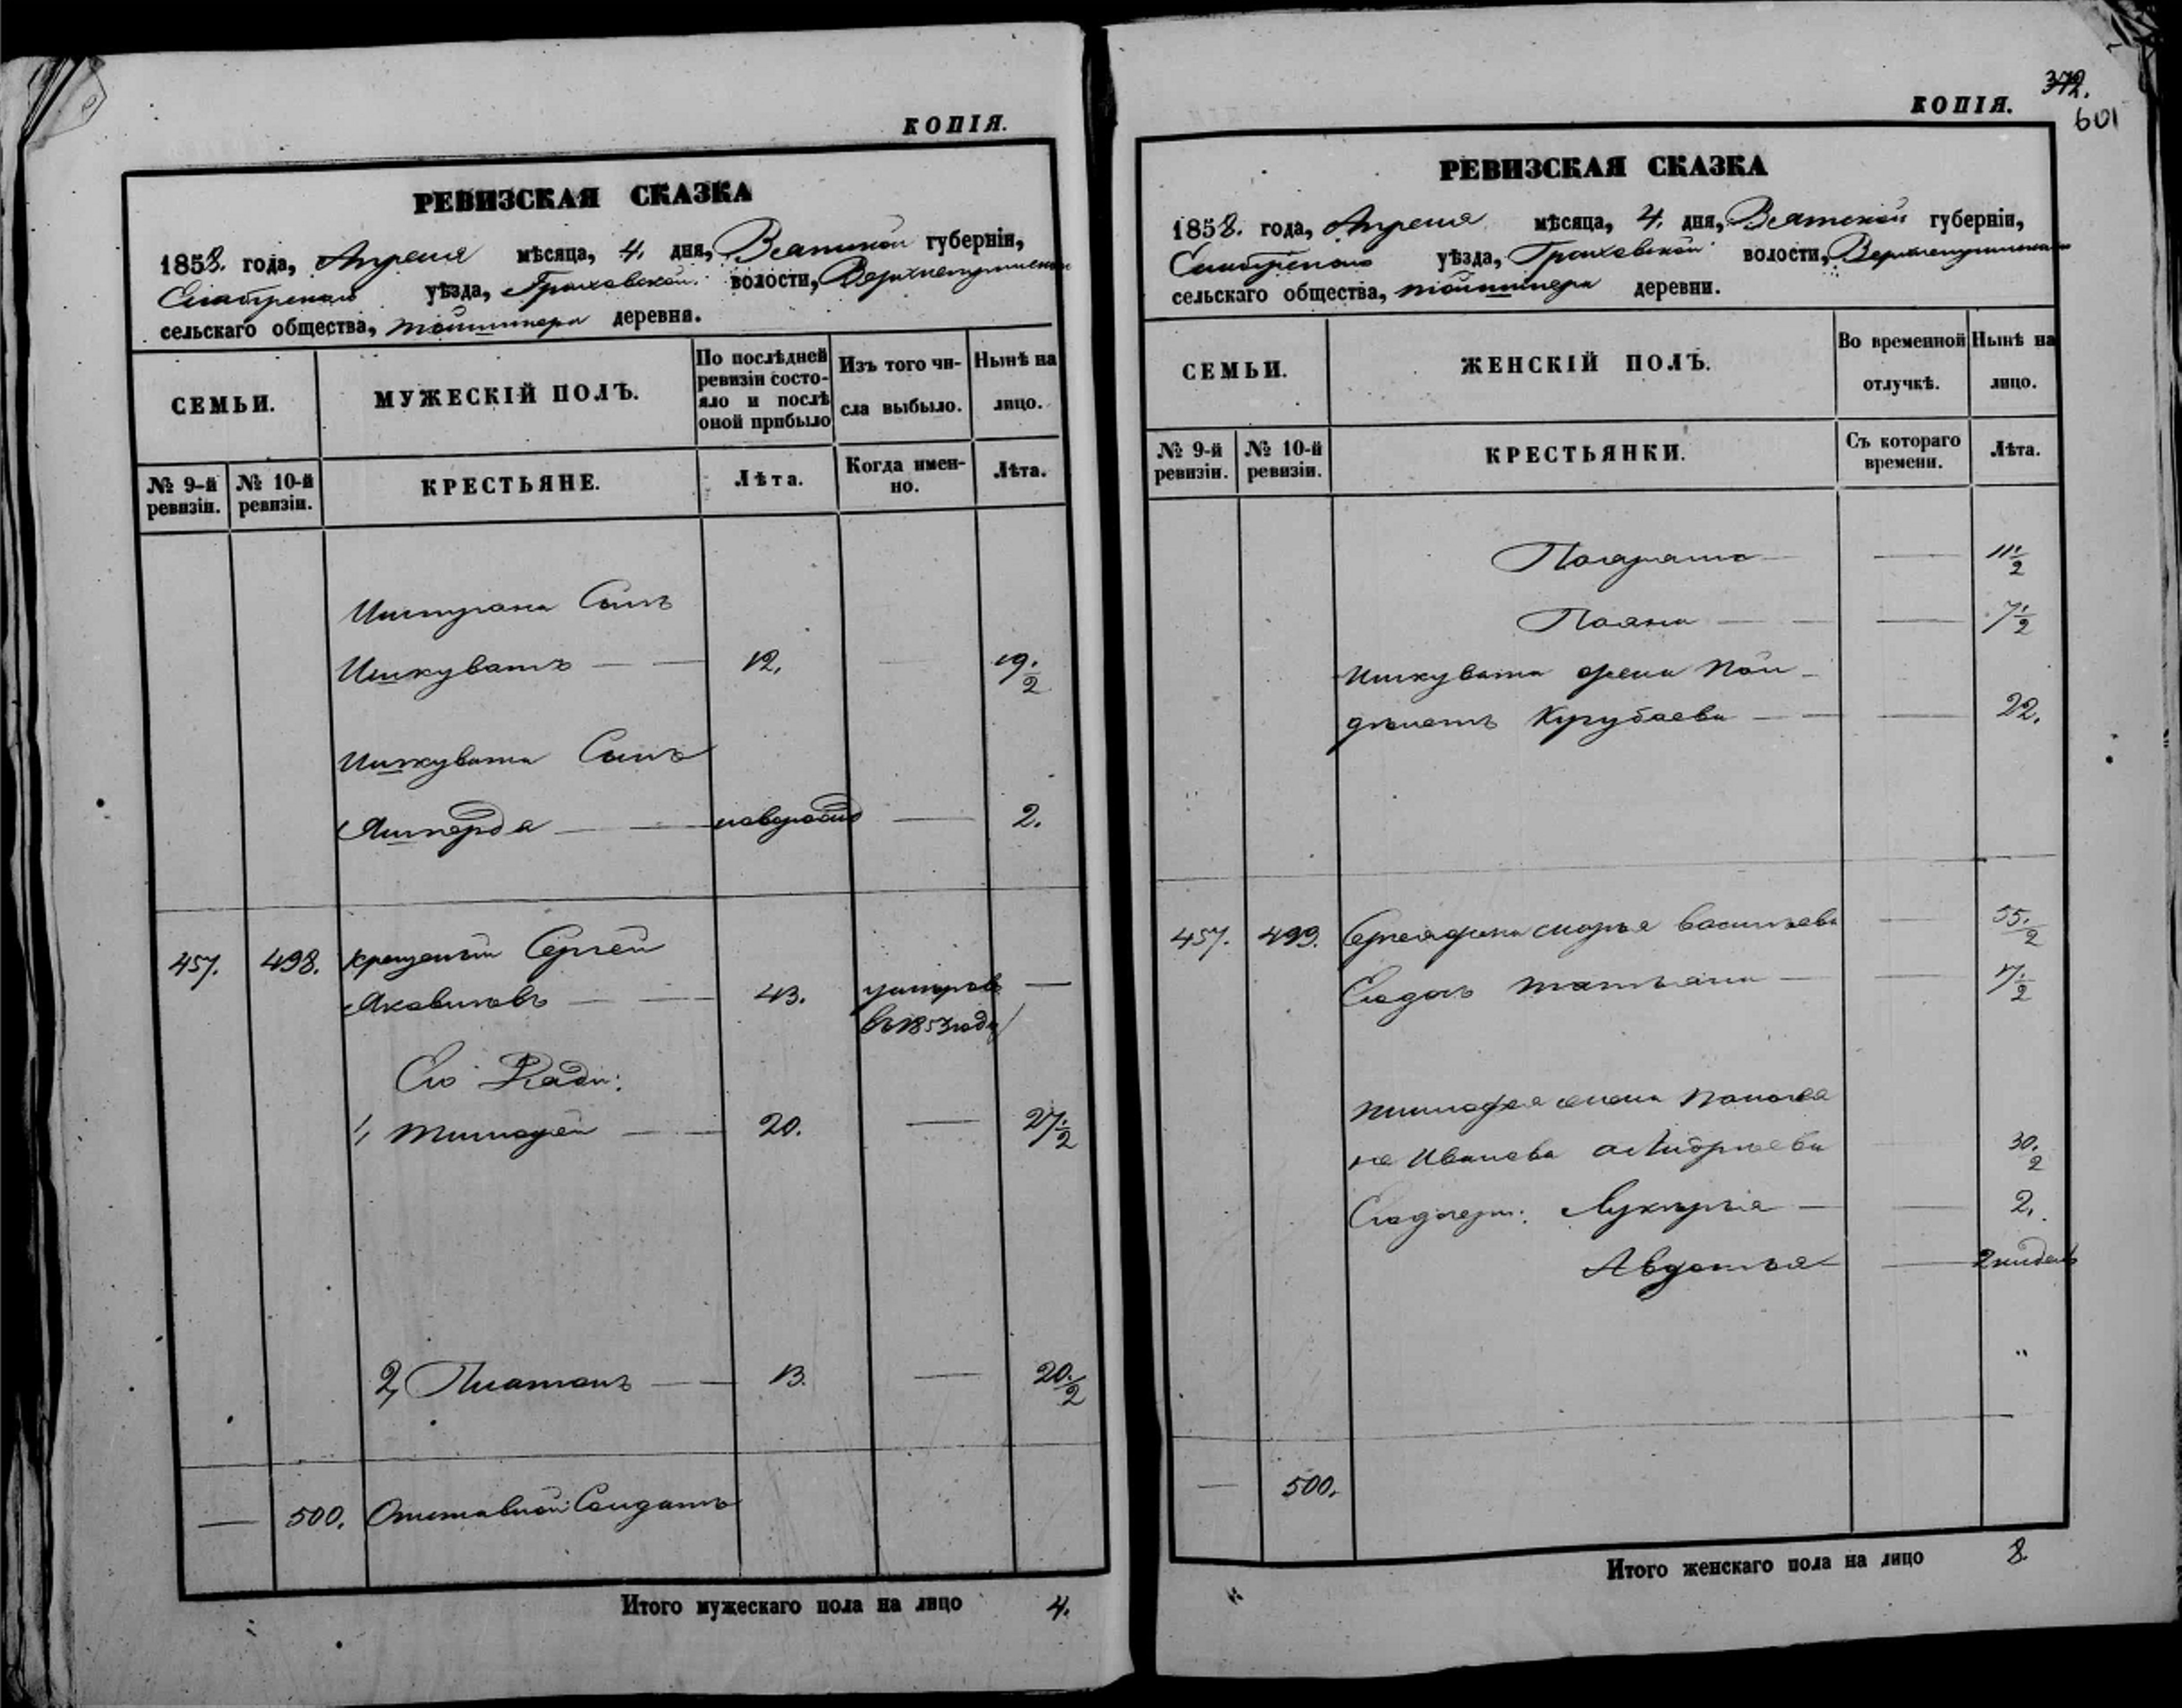 КОПІЯ.
РЕВИЗСКАЯ СКАЗКА
1858. года, Апреля мѣсяца, 4. дня, Вятской губерніи,
Елабужскаго уѣзда, Граховской волости,
сельскаго общества, деревни.
СЕМЬИ.
МУЖЕСКІЙ ПОЛЪ.
По послѣдней ревизіи состо-
яло и послѣ оной прибыло
Изъ того чи-
сла выбыло.
Нынѣ на
лицо.
№ 9-й ревизіи.
№ 10-й ревизіи.
КРЕСТЬЯНЕ.
Лѣта.
Когда имен-
но.
Лѣта.
Сынъ
Ишкуватъ 12. 19 1/2
Ишкувата Сынъ
новорожд 2.
457. 498. крещеный Сергей
Яковлевъ 43. умеръ
въ 1853 году
Его Дети:
1, Тимофей 20. 27 1/2
2, Платонъ 13. 20 1/2
500. Отставной Солдатъ
Итого мужескаго пола на лицо 4.
372.
601
КОПІЯ.
РЕВИЗСКАЯ СКАЗКА
1858. года, Апреля мѣсяца, 4. дня, Вятской губерніи,
Елабужскаго уѣзда, Граховской волости,
сельскаго общества, деревни.
СЕМЬИ.
ЖЕНСКІЙ ПОЛЪ.
Во временной
отлучкѣ.
Нынѣ на
лицо.
№ 9-й ревизіи.
№ 10-й ревизіи.
КРЕСТЬЯНКИ.
Съ котораго
времени.
Лѣта.
11 1/2
7 1/2
Ишкувата жена
22.
457. 499. Сергея жена Марья Васильева 55 1/2
Его дочь Татьяна 17 1/2
Тимофея жена
Иванова Андреева 30 1/2
Его дочери: Лукерья 2.
Авдотья 2 недель
"
500.
Итого женскаго пола на лицо 8